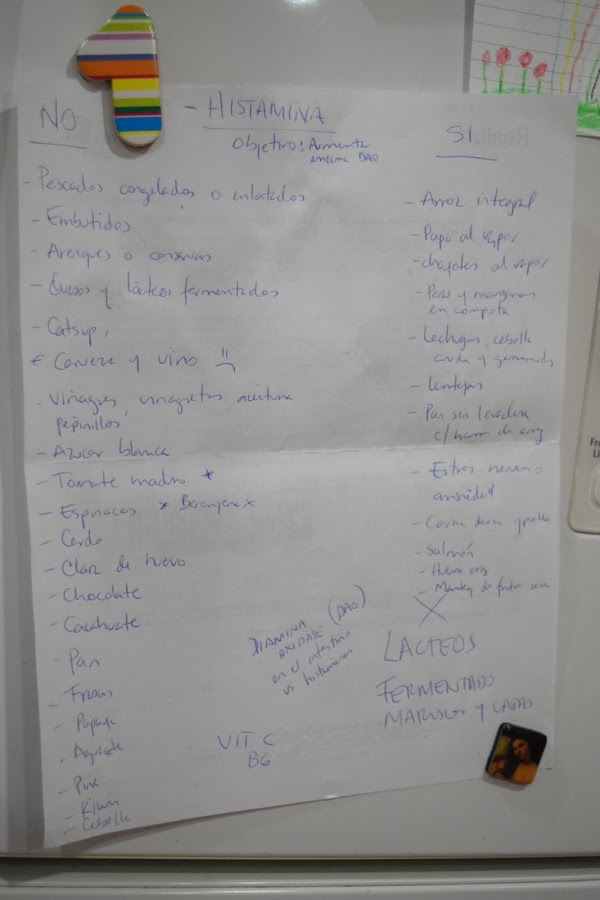 NO
- HISTAMINA
Objetivo: Aumentar
enzima DAO
- Pescados congelados o enlatados
- Embutidos
- Arenques o conservas
- Quesos y lácteos fermentados
- Catsup,
Cerveza y vino
- Vinagres, vinagretas aceituna
pepinillos
- Azucar blanca
- Tomate maduro *
- Espinacas * Berenjena x
- Cerdo
- Clara de huevo
- Chocolate
- Cacahuate
- Pan
- Fresas
- Papaya
- Aguacate
- Piña
- Kiwis
- Cebolla
SI
- Arroz integral
- Papa al vapor
- chayotes al vapor
- Peras y manzanas
en compota
- Lechugas, cebolla
cruda y germinados
- Lentejas
- Pan sin levadura
c/ harina de arroz
- Estres nervios o
ansiedad
- Carne de res y pollo
- Salmón
- Huevo
- Manteq de frutos secos
X
LACTEOS
FERMENTADO
MARISCOS Y
DIAMINA
OXIDASE (DAO)
en el intestino
vs histamina
VIT C
B6